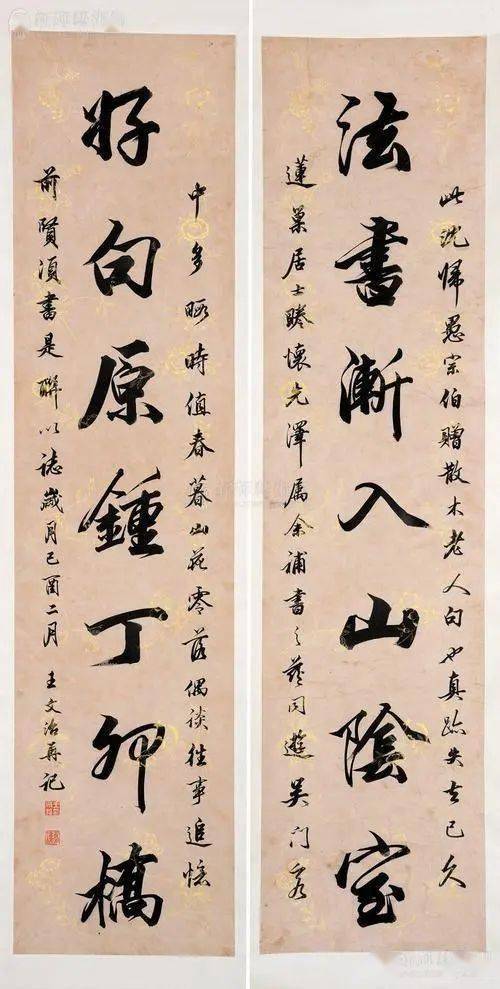 此沈歸愚宗伯贈散木老人句也真跡失去已久
法書漸入山陰室
蓮巢居士睠懷先澤属余補書之茲同遊吳門客
中多暇時值春暮山花零落偶談往事追憶
好句原鍾丁卯橋
前賢須書是聯以誌歲月己酉二月 王文治再記